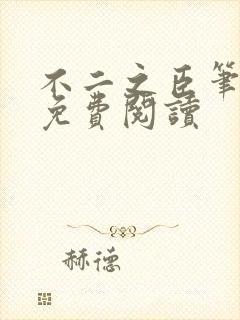 不二之臣筆
免費閱讀
赫德